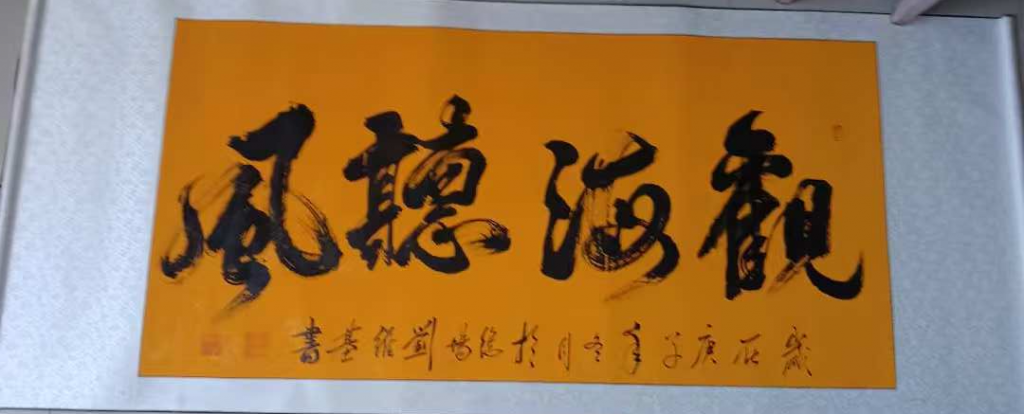 觀海聽風
歲在庚子年冬月於洛陽劉繼基書